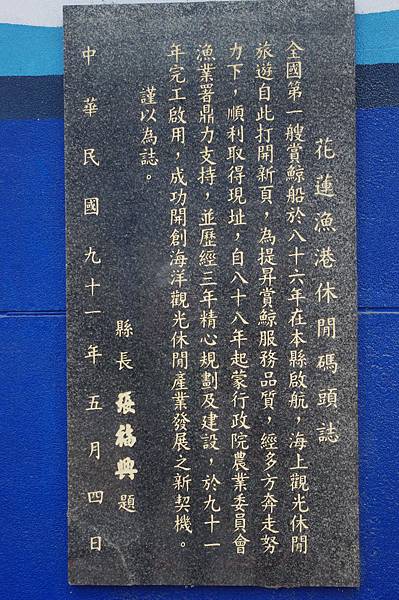 花蓮漁港休閒碼頭誌
全國第一艘賞鯨船於八十六年在本縣啟航，海上觀光休閒
旅遊自此打開新頁，為提昇賞鯨服務品質，經多方奔走努
力下，順利取得現址，自八十八年起蒙行政院農業委員會
漁業署鼎力支持，並歷經三年精心規劃及建設，於九十一
年完工啟用，成功開創海洋觀光休閒產業發展之新契機。
謹以為誌。
縣長 張福興 題
中華民國九十一年五月四日